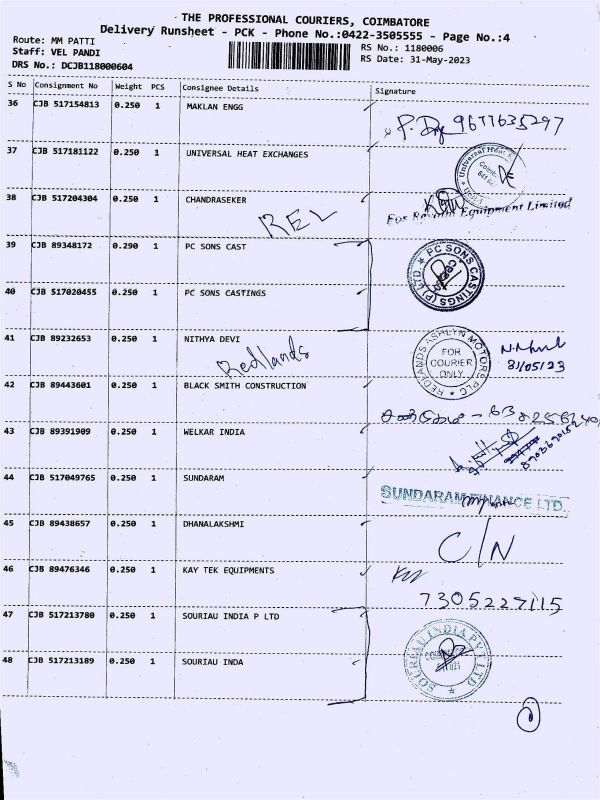 THE PROFESSIONAL COURIERS, COIMBATORE
Delivery Runsheet - PCK - Phone No.:0422-3505555 - Page No.:4
Route: MM PATTI
RS No.: 1180006
Staff: VEL PANDI
RS Date: 31-May-2023
DRS No.: DCJB118000604
S No Consignment No Weight PCS Consignee Details Signature
36 CJB 517154813 0.250 1 MAKLAN ENGG
9677635297
37 CJB 517181122 0.250 1 UNIVERSAL HEAT EXCHANGES
38 CJB 517204304 0.250 1 CHANDRASEKER
REL
Equipment Limited
39 CJB 89348172 0.290 1 PC SONS CAST
PC SONS CASTINGS (P) LTD.
40 CJB 517020455 0.250 1 PC SONS CASTINGS
41 CJB 89232653 0.250 1 NITHYA DEVI
Redlands
REDLANDS ASHLYN MOTORS PLC
FOR
COURIER
ONLY
31/05/23
42 CJB 89443601 0.250 1 BLACK SMITH CONSTRUCTION
43 CJB 89391909 0.250 1 WELKAR INDIA
44 CJB 517049765 0.250 1 SUNDARAM
SUNDARAM FINANCE LTD.
45 CJB 89438657 0.250 1 DHANALAKSHMI
C/N
46 CJB 89476346 0.250 1 KAY TEK EQUIPMENTS
7305227115
47 CJB 517213780 0.250 1 SOURIAU INDIA P LTD
SOURIAU INDIA PVT LTD
48 CJB 517213189 0.250 1 SOURIAU INDA